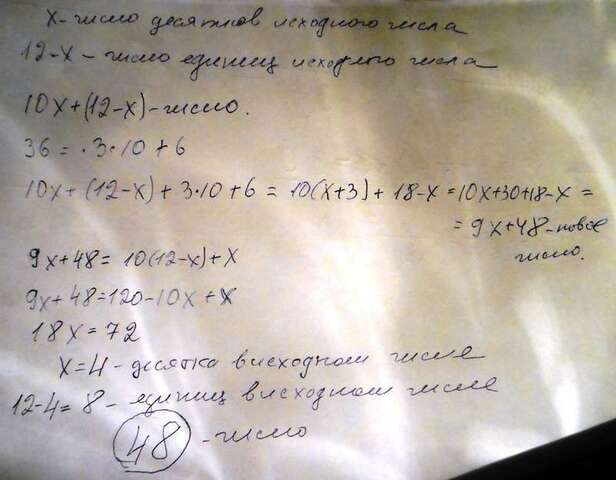 x - число десятков исходного числа
12-x - число единиц исходного числа
10x+(12-x) - число.
36 = · 3·10 + 6
10x + (12-x) + 3·10 + 6 = 10(x+3) + 18-x = 10x+30+18-x =
= 9x+48 - новое
число.
9x+48 = 10(12-x)+x
9x+48=120-10x+x
18x=72
x=4 - десятка в исходном числе
12-4= 8 - единиц в исходном числе
48 - число